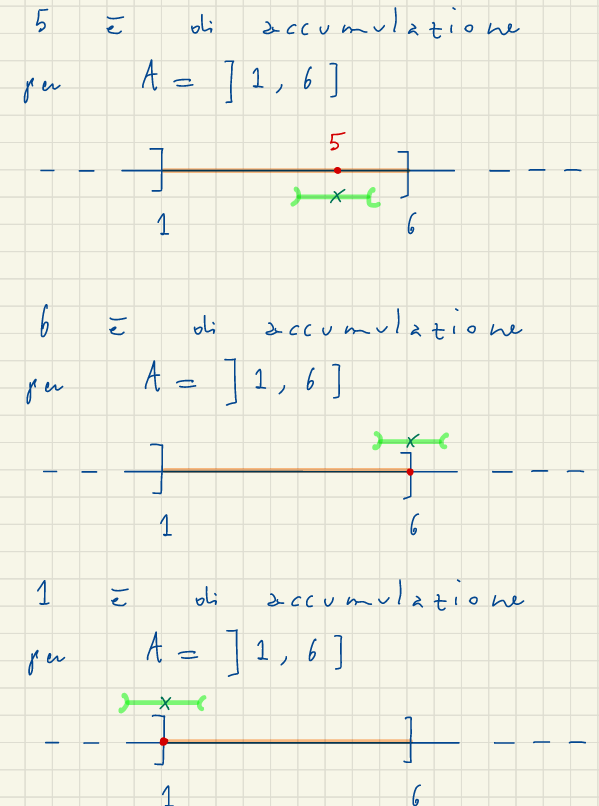 5 è di accumulazione
per A = ]1, 6]
5
x
1 6
6 è di accumulazione
per A = ]1, 6]
x
1 6
1 è di accumulazione
per A = ]1, 6]
x
1 6